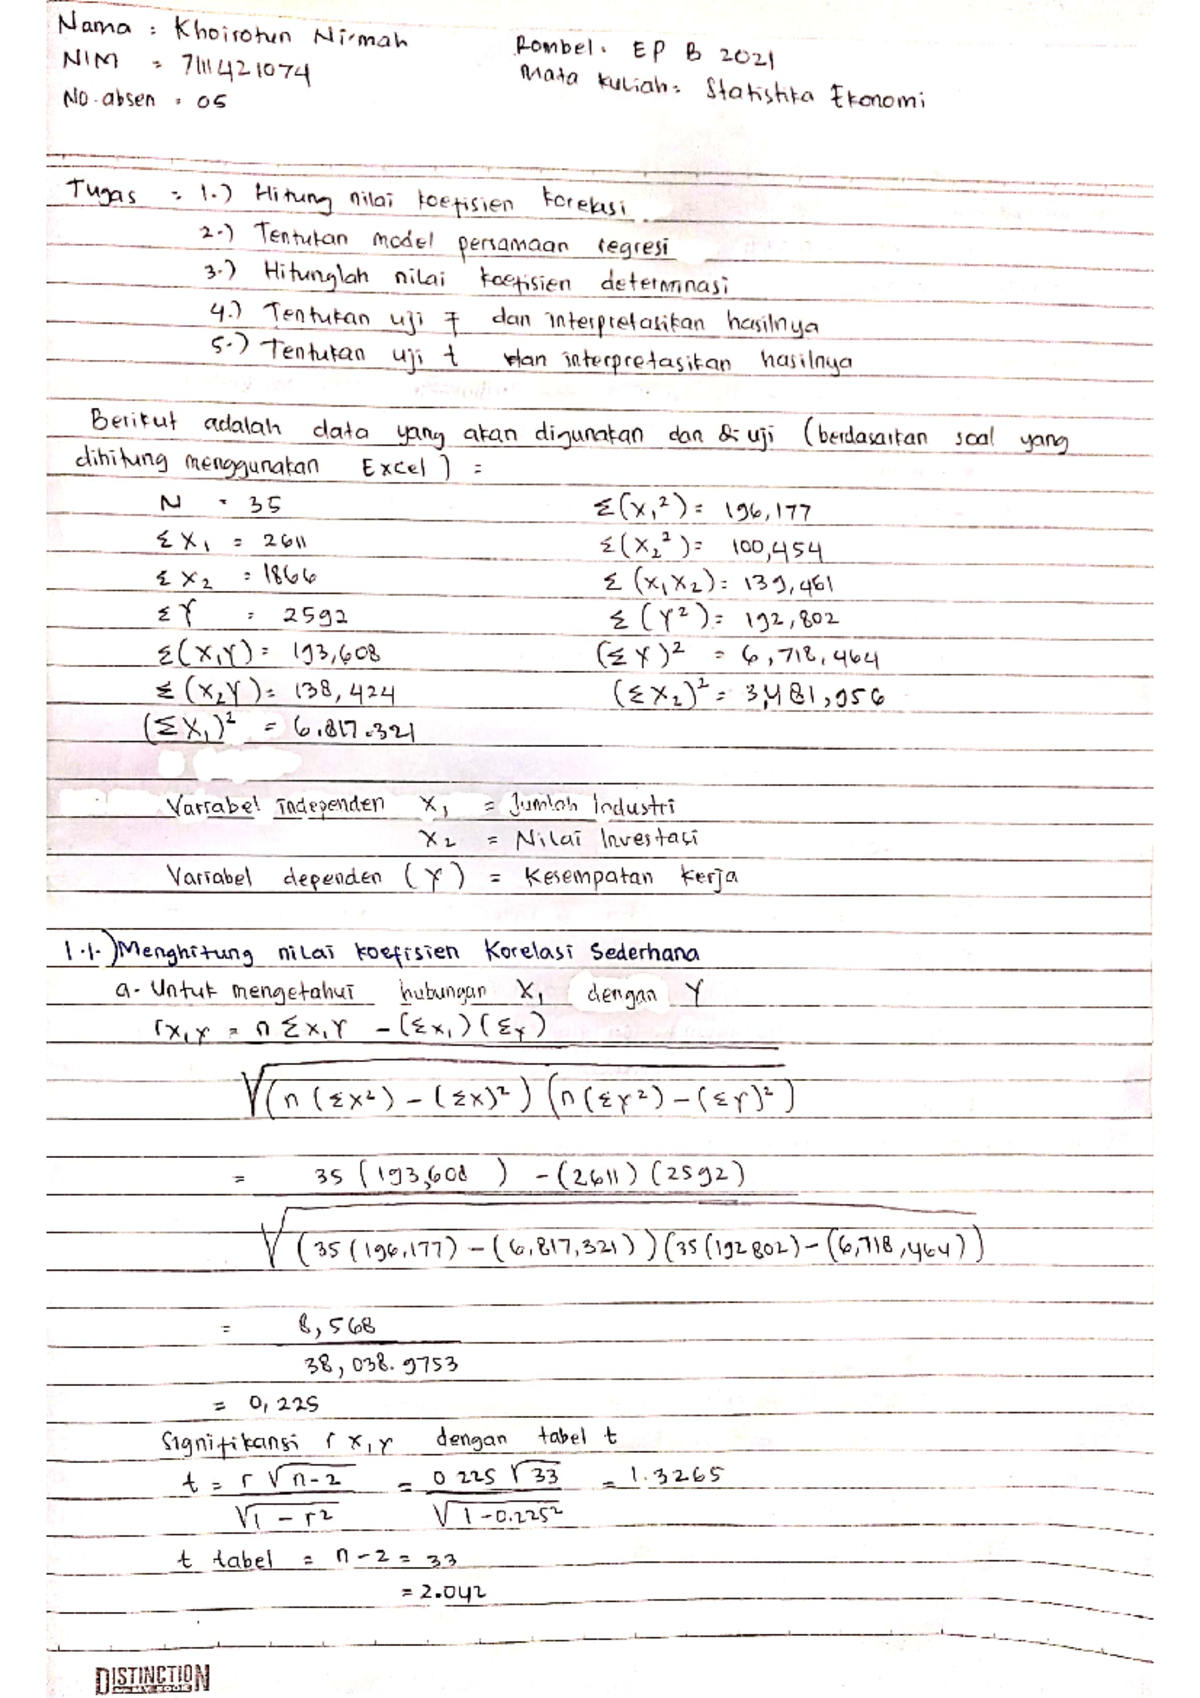 Nama : Khoirotun Ni'mah
NIM = 7111421074
No. absen = 05
Rombel : EP B 2021
Mata kuliah = Statistika Ekonomi
Tugas = 1.) Hitung nilai koefisien korelasi
2.) Tentukan model persamaan regresi
3.) Hitunglah nilai koefisien determinasi
4.) Tentukan uji F dan interpretasikan hasilnya
5.) Tentukan uji t dan interpretasikan hasilnya
Berikut adalah data yang akan digunakan dan di uji (berdasarkan soal yang
dihitung menggunakan Excel) =
N = 35 Σ(X₁²) = 196,177
ΣX₁ = 2611 Σ(X₂²) = 100,454
ΣX₂ = 1866 Σ(X₁X₂) = 139,461
ΣY = 2592 Σ(Y²) = 192,802
Σ(X₁Y) = 193,608 (ΣY)² = 6,718,464
Σ(X₂Y) = 138,424 (ΣX₂)² = 3,481,956
(ΣX₁)² = 6.817.321
Variabel independen X₁ = Jumlah Industri
X₂ = Nilai Investasi
Variabel dependen (Y) = Kesempatan Kerja
1.1.) Menghitung nilai koefisien Korelasi Sederhana
a. Untuk mengetahui hubungan X₁ dengan Y
rx₁y = n Σx₁Y - (Σx₁)(Σy)
√(n(Σx²) - (Σx)²)(n(Σy²) - (Σy)²)
= 35(193,608) - (2611)(2592)
√(35(196,177) - (6,817,321))(35(192802) - (6,718,464))
= 8,568
38,038.9753
= 0,225
Signifikansi r x₁y dengan tabel t
t = r √n-2 = 0.225 √33 = 1.3265
√1 - r² √1 - 0.225²
t tabel = n-2 = 33
= 2.042
DISTINCTION